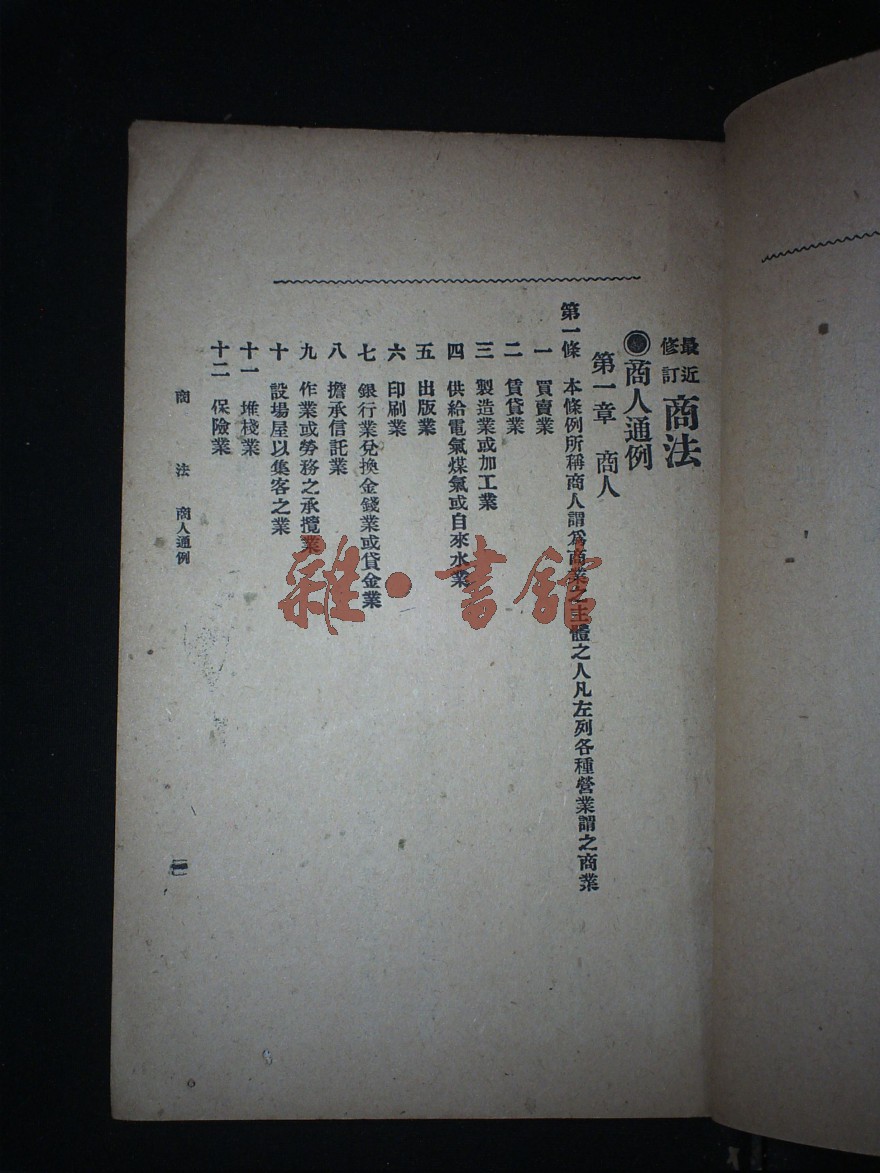 最近修訂 商法
商人通例
第一章 商人
第一條 本條例所稱商人謂爲商業之主體之人凡左列各種營業謂之商業
一 買賣業
二 賃貸業
三 製造業或加工業
四 供給電氣煤氣或自來水業
五 出版業
六 印刷業
七 銀行業兌換金錢業或貸金業
八 擔承信託業
九 作業或勞務之承攬業
十 設場屋以集客之業
十一 堆棧業
十二 保險業
商法 商人通例
一
雜·書館